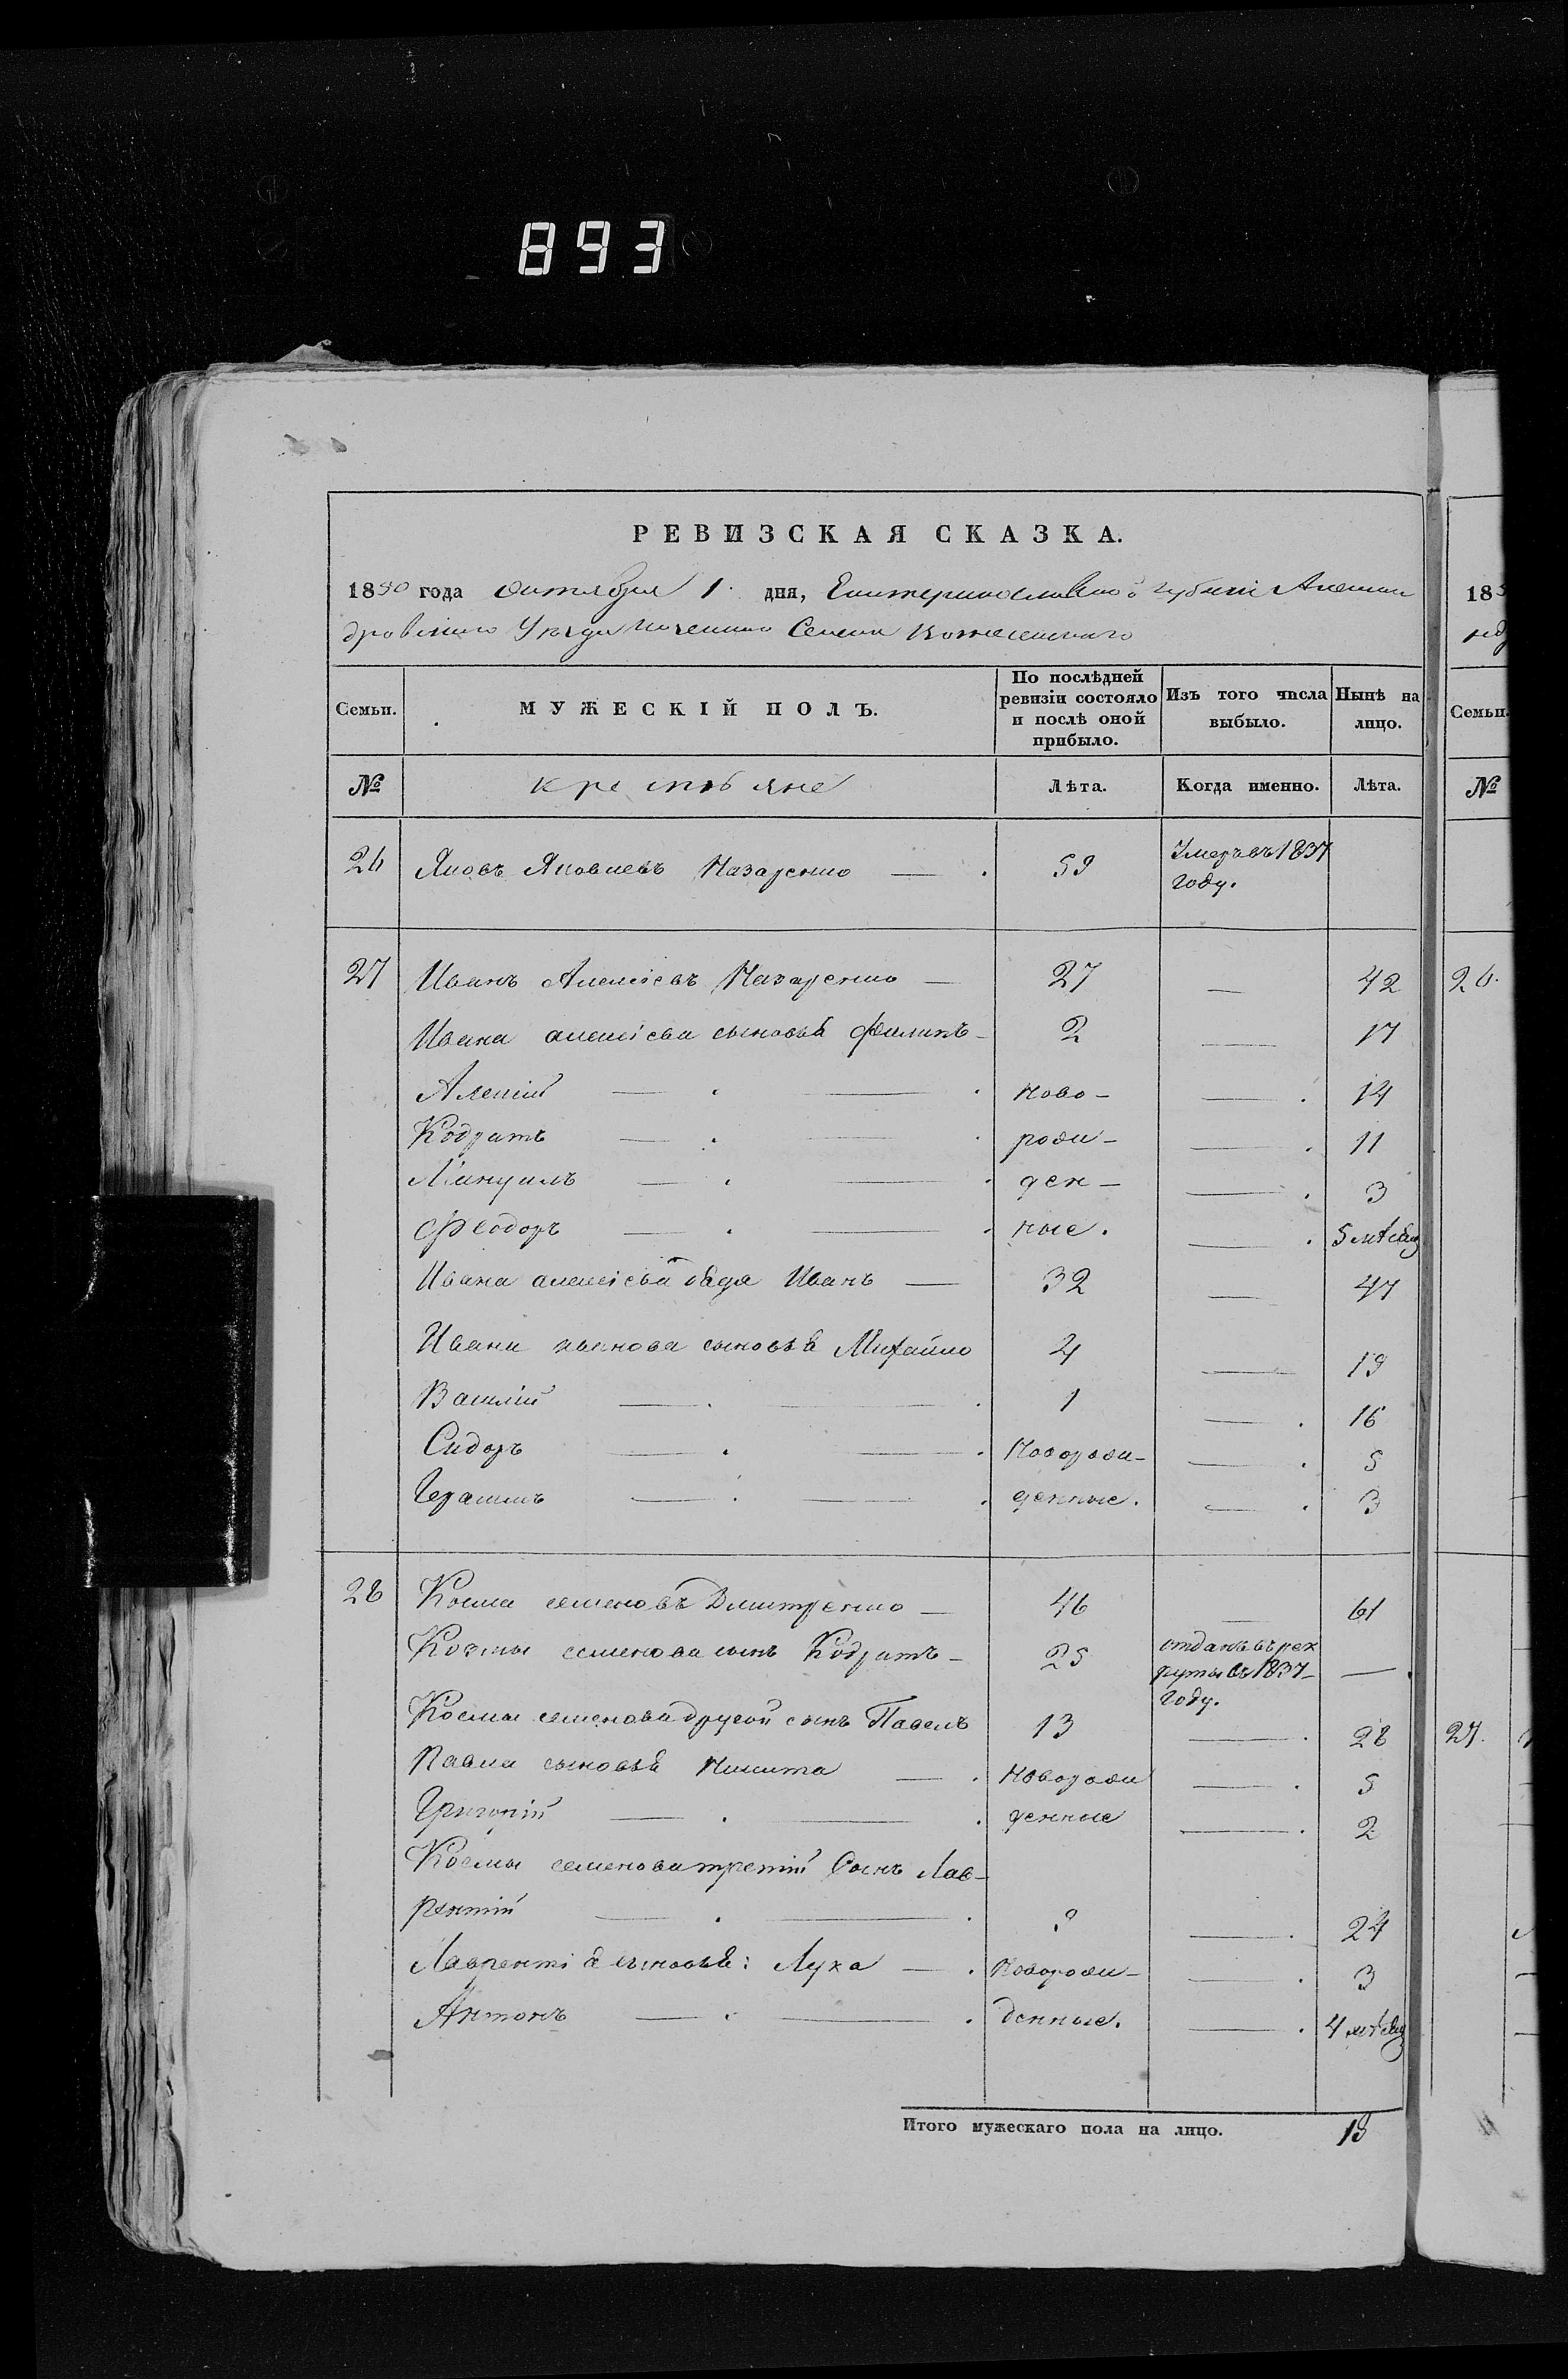 893
РЕВИЗСКАЯ СКАЗКА.
1850 года Октября 1. дня, Екатеринославской губернiи Алексан
дровскаго Уезда Семена
Семьи. МУЖЕСКІЙ ПОЛЪ. По послѣдней ревизіи состояло и послѣ оной прибыло. Изъ того числа выбыло. Нынѣ на лицо.
№ крестьяне Лѣта. Когда именно. Лѣта.
26 Яковъ Яковлевъ Назаренко — . 59 Умеръ въ 1837 году.
27 Иванъ Алексiевъ Назаренко — 27 — 42
Ивана алексiева сыновья Филипъ - 2 — 17
Алексiй — . — . ново- — . 14
Кодратъ — . — . рож- — . 11
Мануилъ — . — . ден- — . 3
Феодоръ — . — . ные. — . 5 мѣсяц
Ивана алексiева дядя Иванъ — 32 — 47
Ивана иванова сыновья Михайло 4 — 19
Василiй — . — . 1 — . 16
Сидоръ — . — . Новорож- — . 5
Герасимъ — . — . денные. — . 3
28 Косма семеновъ Дмитренко — 46 — 61
Козмы семенова сынъ Кодратъ - 25 отданъ въ рек
руты въ 1837 — .
году.
Космы семенова другой сынъ Павелъ 13 — . 28
Павла сыновья Никита — . Новорож — . 5
Григорiй — . — . денные — . 2
Космы семенова третiй Сынъ Лав-
рентiй — . — . 9 — . 24
Лаврентiя сыновья: Лука — . Новорож- — . 3
Антонъ — . — . денные. — . 4 мѣсяц
Итого мужескаго пола на лицо. 18
185
Семьи.
№
26.
27.